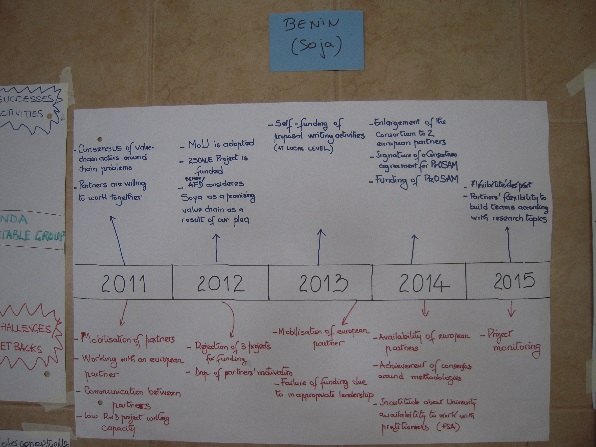 BENIN
(Soja)
SUCCESSES
ACTIVITIES
NDA
TABLE GROUP
CHALLENGES
SET BACKS
- Consensus of value
chain actors around
chain problems
- Partners are willing
to work together
- MoU is adopted
- 2SCALE Project is
funded
- AFD considers
Soya as a promising
value chain as a
result of our plaq
- Self-funding of
proposal writing activities
(AT LOCAL LEVEL)
- Enlargement of the
Consortium to 2
european partners
- Signature of a Consortium
agreement for PROSAM
- Funding of PROSAM
- Partners' flexibility to
build teams according
with research topics
2011
2012
2013
2014
2015
- Mobilisation of partners
- Working with an european
partner
- Communication between
partners
- Low R&D project writing
capacity
- Rejection of 3 projects
for funding
- of partners' motivation
- Mobilisation of european
partner
- Failure of funding due
to inappropriate leadership
- Availability of european
partners
- Achievement of consensus
around methodologies
- Incertitude about University
availability to work with
(FSA)
- Project
monitoring